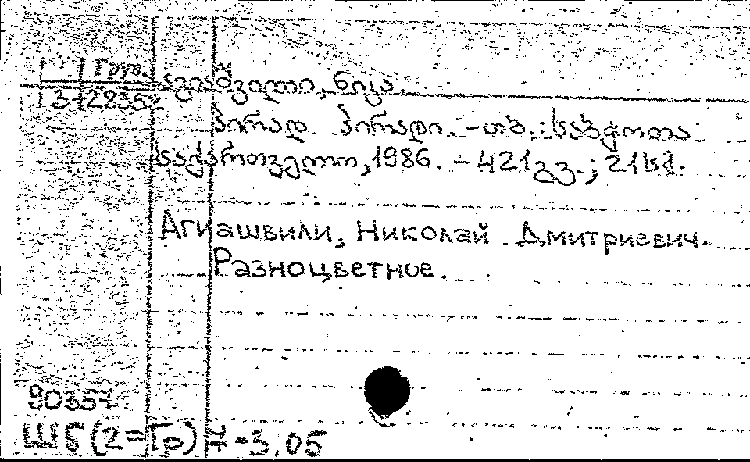 აგიაშვილი, ნიკა.
პირად პირადი. - თბ.: საბჭოთა
საქართველო, 1986. - 421 გვ.; 21 სმ.
Агиашвили, Николай Дмитриевич.
Разноцветное.
90357
Ш6(2=Гр)7-3.05